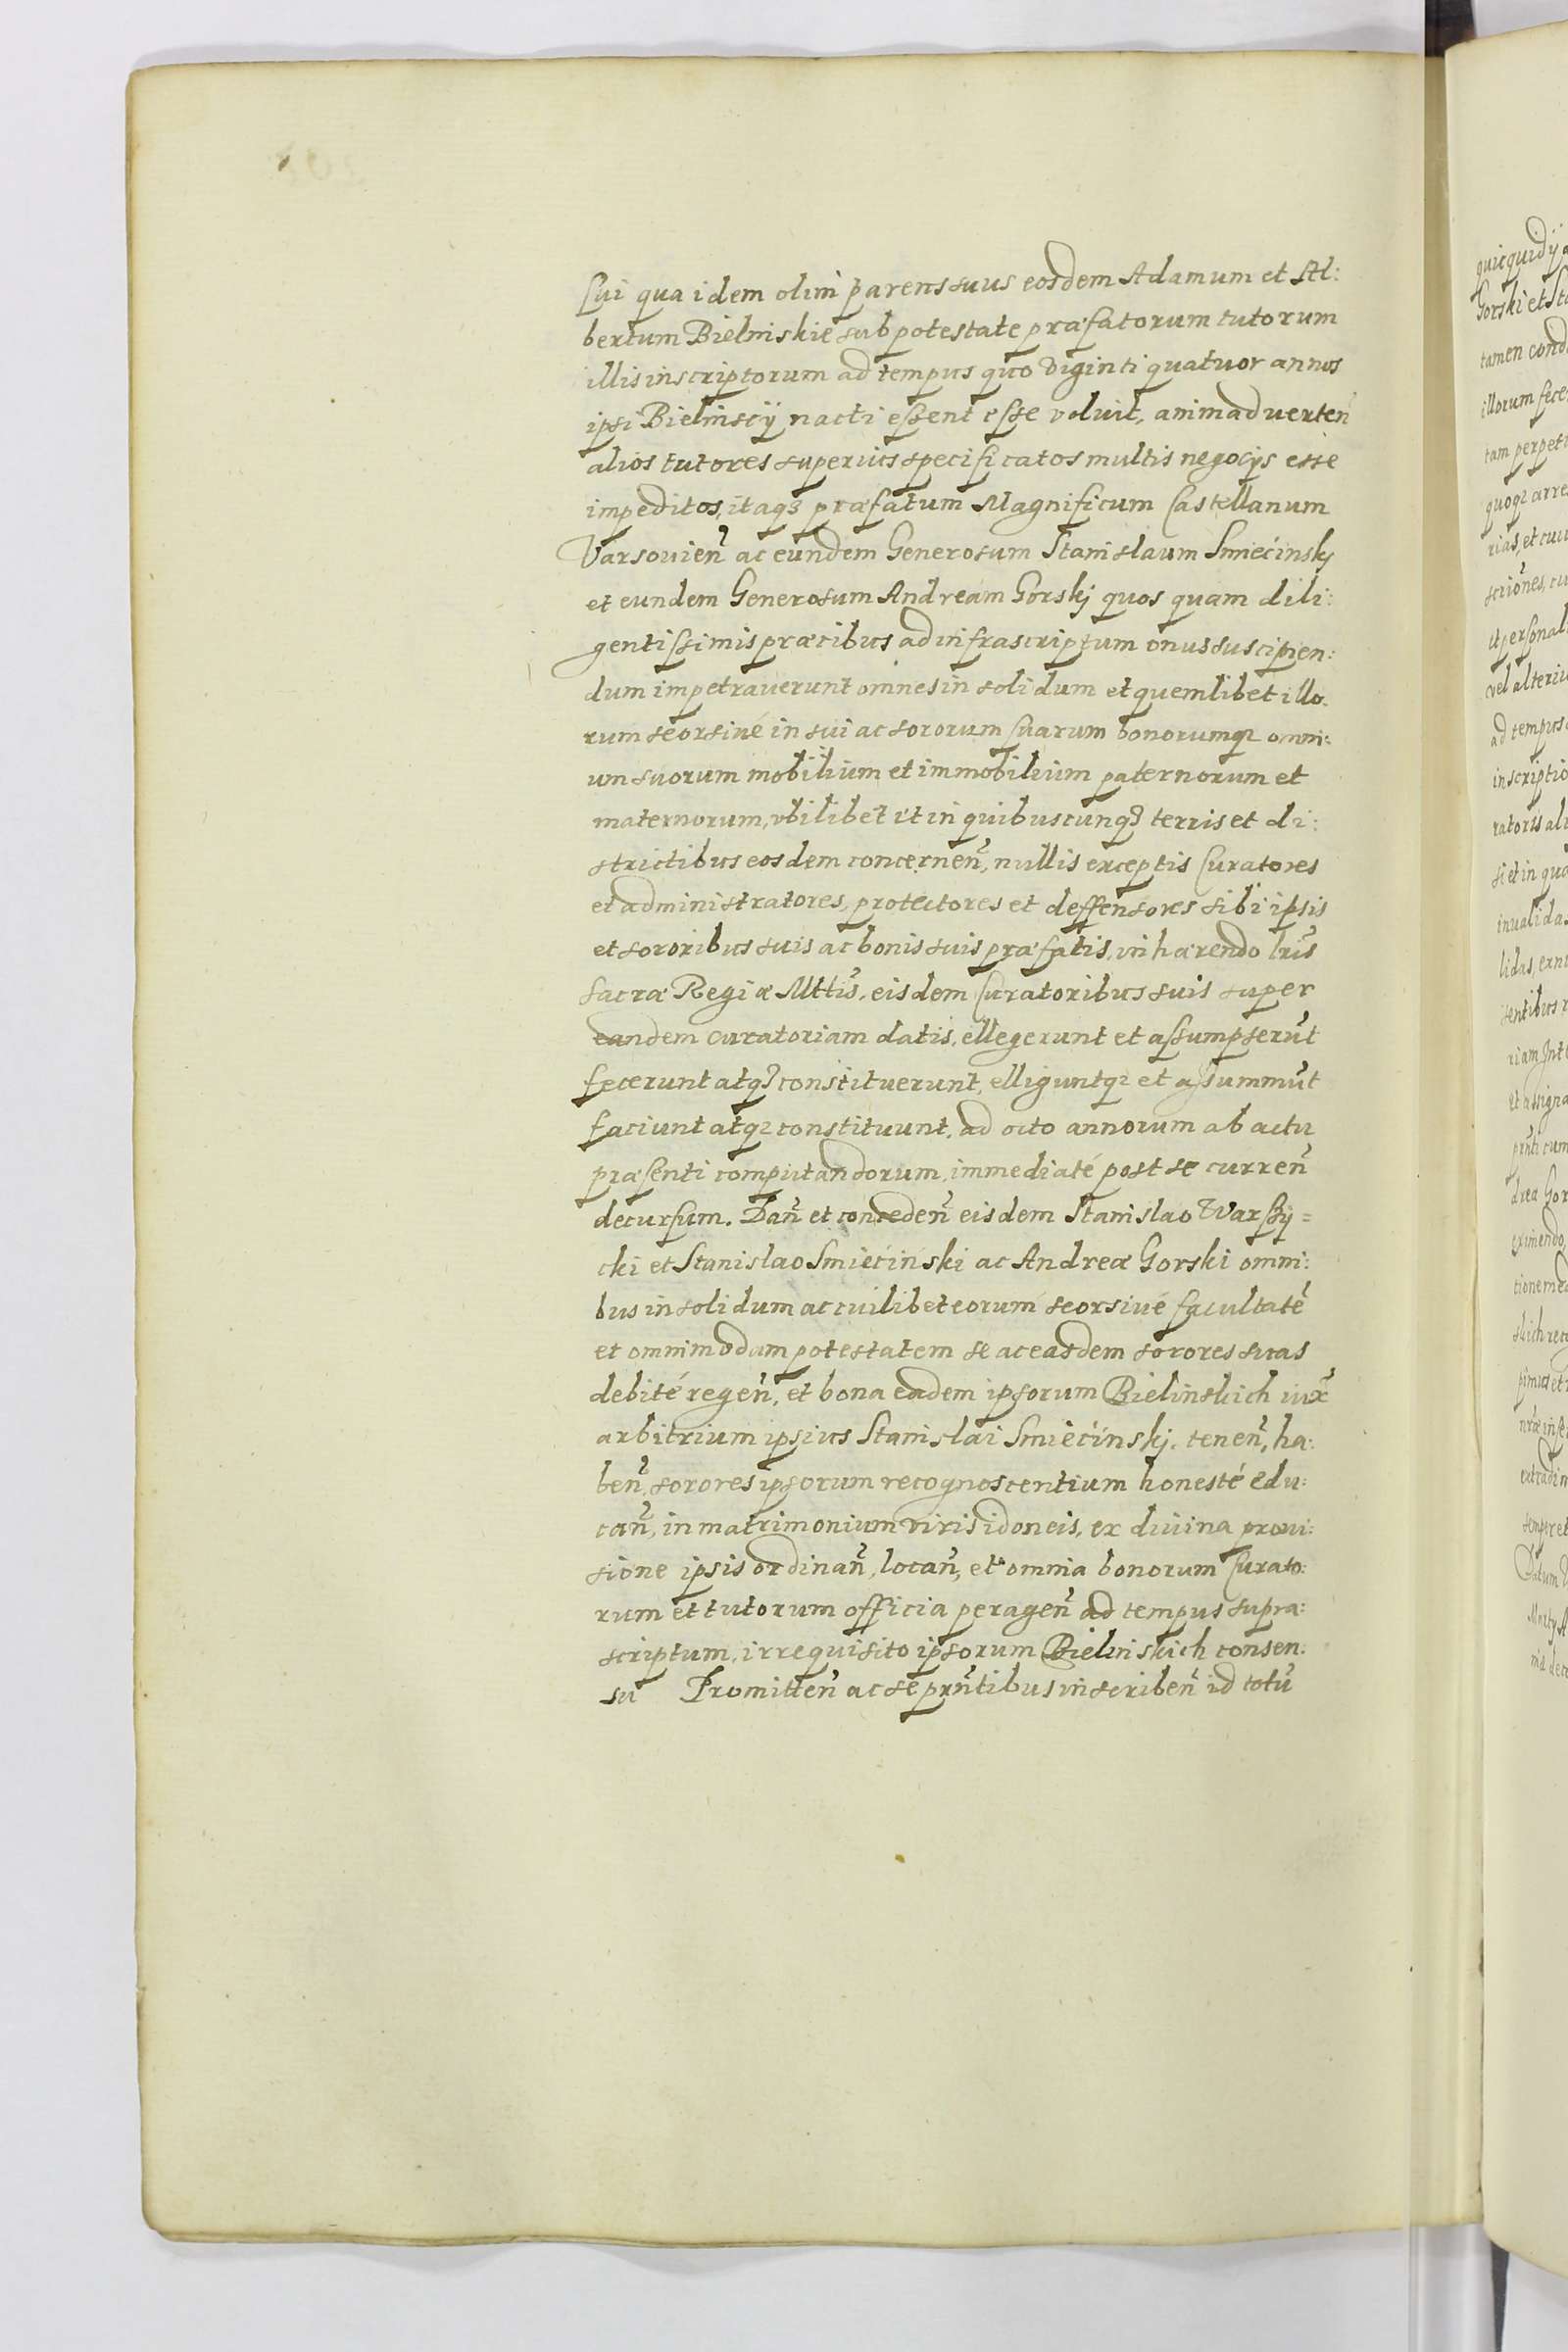 sui qua idem olim parens suus eosdem Adamum et Al:
bertum Bielinskie sub potestate præfatorum tutorum
illis inscriptorum ad tempus quo viginti quatuor annos
ipsi Bielinscÿ nacti essent esse voluit, animaduerten̄
alios tutores superius specificatos multis negocÿs esse
impeditos, itaqꝫ præfatum Magnificum Castellanum
Varsouien̄ ac eundem Generosum Stanislaum Smiećinskj
et eundem Generosum Andream Gorskj quos quam dili:
gentissimis præcibus ad infrascriptum onus suscipien:
dum impetrauerunt omnes in solidum et quemlibet illo:
rum seorsiué in sui ac sororum suarum bonorumqꝫ omni:
um suorum mobilium et immobilium paternorum et
maternorum, vbilibet et in quibuscunqꝫ terris et di:
strictibus eosdem concernen̄, nullis exceptis Curatores
et administratores, protectores et deffensores sibi ipsis
et sororibus suis ac bonis suis præfatis, inhærendo lr̄is
sacræ Regiæ Mttīs, eisdem Curatoribus suis super
eandem curatoriam datis, ellegerunt et assumpserūt
fecerunt atqꝫ constituerunt, elliguntqꝫ et assummūt
faciunt atqꝫ constituunt, ad octo annorum ab actu
præsenti computandorum, immediaté post se curren̄
decursum. Dan̄ et conceden̄ eisdem Stanislao Warssÿ=
cki et Stanislao Smiećinski ac Andreæ Gorski omni:
bus in solidum ac cuilibet eorum seorsiué facultatē
et omnimodam potestatem se ac easdem sorores suas
debité regen̄, et bona eadem ipsorum Bielinskich iux̄
arbitrium ipsius Stanislai Smiećinskj, tenen̄, ha:
ben̄, sorores ipsorum recognoscentium honesté edu:
can̄, in matrimonium viris idoneis, ex diuina proui:
sione ipsis ordinan̄, locan̄, et omnia bonorum Curato:
rum et tutorum officia peragen̄ ad tempus supra:
scriptum, irrequisito ipsorum Bielinskich consen:
su Promitten̄ ac se prn̄tibus inscriben̄ id totū